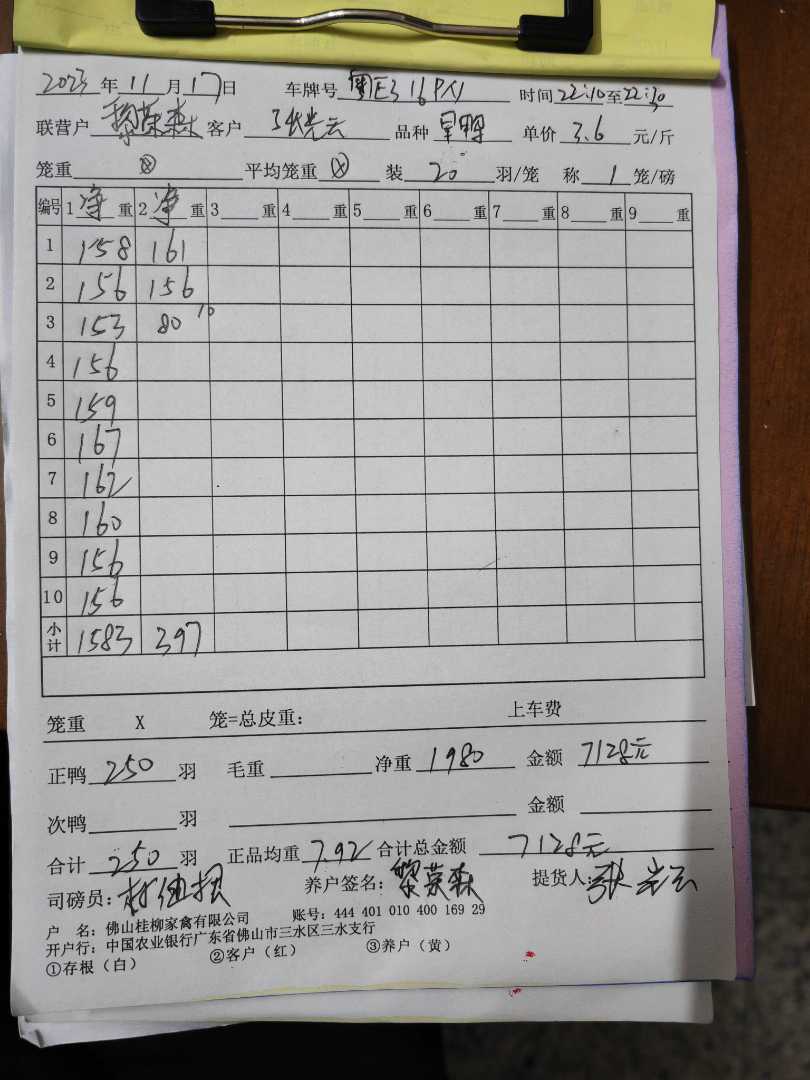 2023年11月17日 车牌号 粤E316PX 时间22:10至22:30
联营户 黎荣森 客户 张光云 品种 单价 3.6 元/斤
笼重 ⊗ 平均笼重 ⊗ 装 20 羽/笼 称 1 笼/磅
编号 1 净 重 2 净 重 3 重 4 重 5 重 6 重 7 重 8 重 9 重
1 158 161
2 156 156
3 153 80 10
4 156
5 159
6 167
7 162
8 160
9 156
10 156
小计 1583 397
笼重 X 笼=总皮重： 上车费
正鸭 250 羽 毛重 净重 1980 金额 7128元
次鸭 羽 金额
合计 250 羽 正品均重 7.92 合计总金额 7128元
司磅员： 养户签名：黎荣森 提货人：张光云
户 名：佛山桂柳家禽有限公司 账号：444 401 010 400 169 29
开户行：中国农业银行广东省佛山市三水区三水支行
①存根（白） ②客户（红） ③养户（黄）